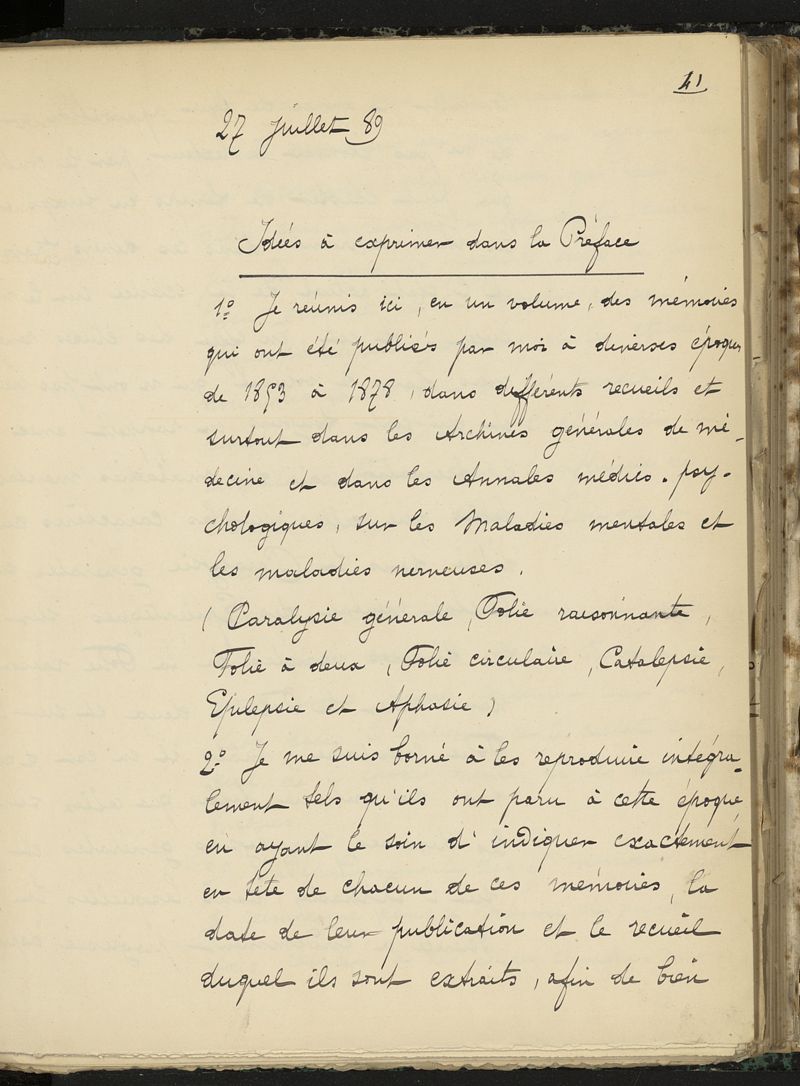 41
27 juillet 89
Idées à exprimer dans la Préface
1º Je réunis ici, en un volume, des mémoires
qui ont été publiés par moi à diverses époques
de 1853 à 1878, dans différents recueils et
surtout dans les Archives générales de mé-
decine et dans les Annales médico-psy-
chologiques, sur les Maladies mentales et
les maladies nerveuses.
(Paralysie générale, Folie raisonnante,
Folie à deux, Folie circulaire, Catalepsie,
Epilepsie et Aphasie)
2º Je me suis borné à les reproduire intégra-
lement tels qu'ils ont paru à cette époque
en ayant le soin d'indiquer exactement
en tete de chacun de ces memoires, la
date de leur publication et le recueil
duquel ils sont extraits, afin de bien